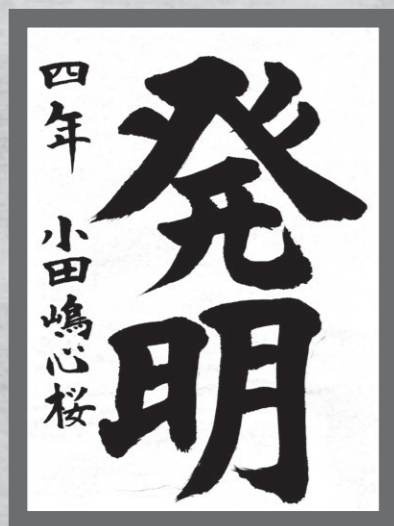 発明
四年 小田嶋心桜